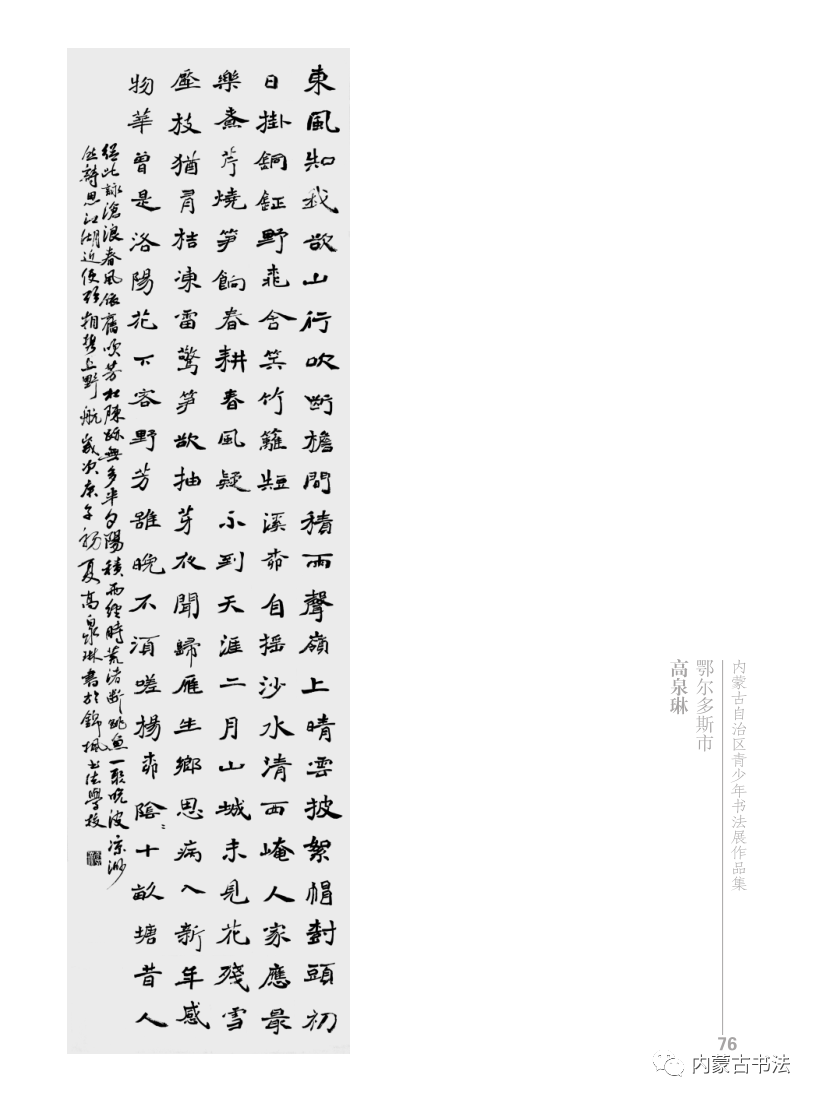 東風知我欲山行吹斷檐間積雨聲嶺上晴雲披絮帽尌頭初
日掛銅鉦野桃含笑竹籬短溪柳自搖沙水清西崦人家應最
樂煮芹燒笋餉春耕春風疑不到天涯二月山城未見花殘雪
壓枝猶有桔凍雷驚笋欲抽芽夜聞歸雁生鄉思病入新年感
物華曾是洛陽花下客野芳雖晚不須嗟楊柳陰〻十畝塘昔人
經此詠滄浪春風依舊吹芳杜陳跡無多半夕陽積雨經時荒渚斷跳魚一聚晚波凉渺
然詩思江湖近便欲相攜上野航歲次庚子初夏高泉琳書於錦楓書法學校
内蒙古自治区青少年书法展作品集
鄂尔多斯市
高泉琳
76
内蒙古书法